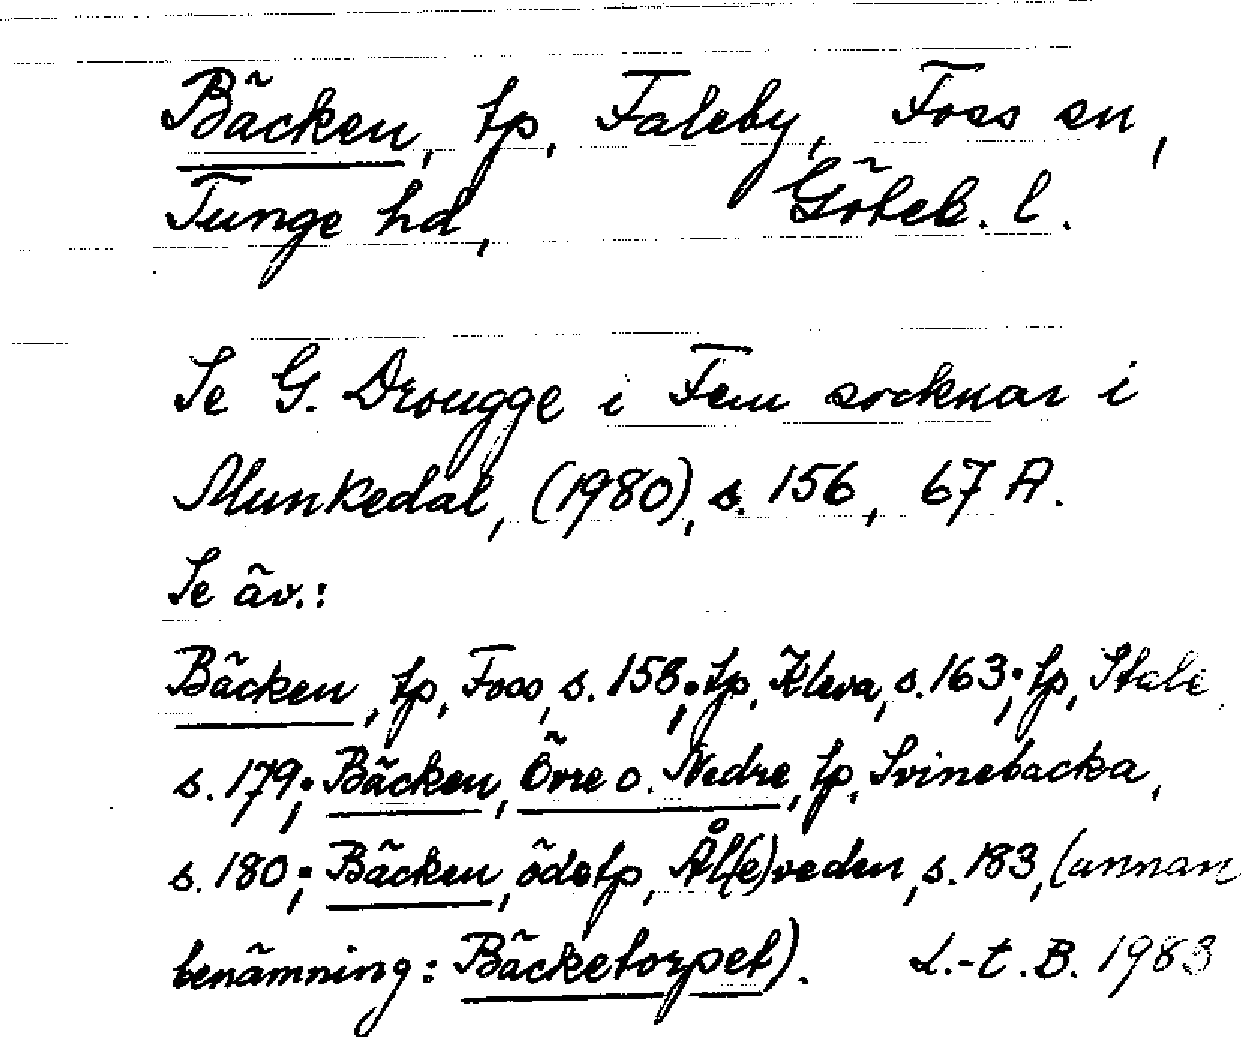 Bäcken, tp, Faleby, Foss sn,
Tunge hd, Göteb. l.
Se G. Drougge i Fem socknar i
Munkedal, (1980), s. 156, 67 A.
Se äv.:
Bäcken, tp, Foss, s. 158; tp, Kleva, s. 163; tp, Stale
s. 179; Bäcken, Övre o. Nedre, tp, Svinebacka,
s. 180; Bäcken, ödetp, Ål(e)veden, s. 183, (annan
benämning: Bäcketorpet). L.-t. B. 1983